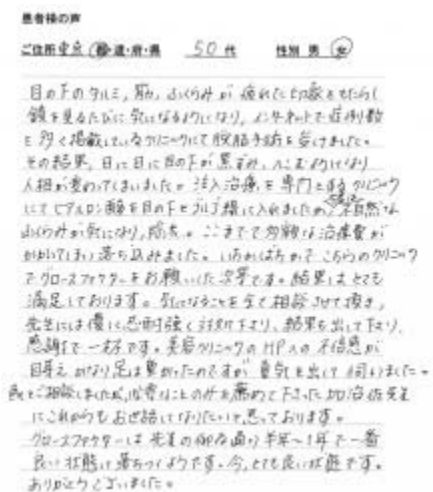 患者様の声
ご住所 東京 都・道・府・県 50代 性別 男・女
目の下のタルミ、筋、ふくらみが疲れた印象をもたらし
鏡を見るたびに気になるようになり、インターネットで症例数
を多く掲載しているクリニックにて脱脂手術を受けました。
その結果、日に日に目の下が黒ずみ、へこむようになり
人相が変わってしまいました。注入治療を専門とするクリニック
にてヒアルロン酸を目の下とゴルゴ線に入れましたが、不自然な
ふくらみが気になり、除去。ここまでで多額な治療費が
かかってしまい落ち込みました。 こちらのクリニック
でグロースファクターをお願いした次第です。結果はとても
満足しております。気になることを全て相談させて頂き、
先生には優しく忍耐強く対処下さり、結果を出して下さり、
感謝で一杯です。美容クリニックのHPへの不信感が
目芽え かなり足は重かったのですが 勇気を出して伺いました。
ご相談しましたが、必要なことのみを薦めて下さった 先生
にこれからもお世話になりたいと思っております。
グロースファクターは先生の仰る通り半年〜1年で一番
良い状態に落ちつくようです。今、とても良い状態です。
ありがとうございました。